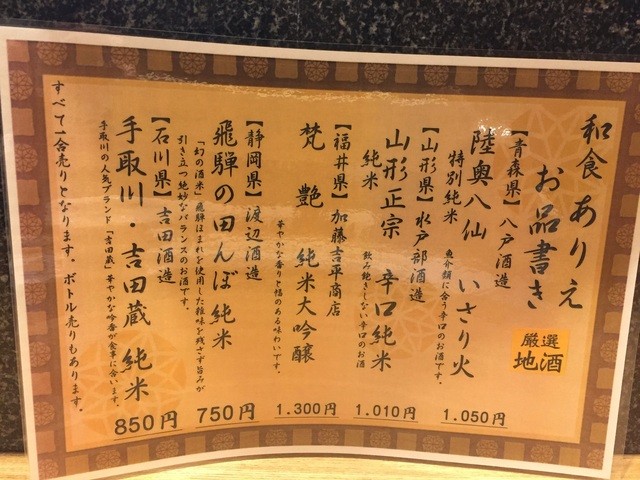 和食 ありえ
お品書き
厳選
地酒
【青森県】八戸酒造
陸奥八仙 いさり火
特別純米
魚介類に合う辛口のお酒です。
1.050円
【山形県】水戸部酒造
山形正宗 辛口純米
純米
飲み飽きしない辛口のお酒
1.010円
【福井県】加藤吉平商店
梵 艶 純米大吟醸
華やかな香りと幅のある味わいです。
1.300円
【静岡県】渡辺酒造
飛騨の田んぼ 純米
「幻の酒米」飛騨ほまれを使用した雑味を残さず旨みが
引き立つ絶妙なバランスのお酒です。
750円
【石川県】吉田酒造
手取川・吉田蔵 純米
手取川の人気ブランド「吉田蔵」華やかな吟香が食事に合います。
850円
すべて一合売りとなります。ボトル売りもあります。